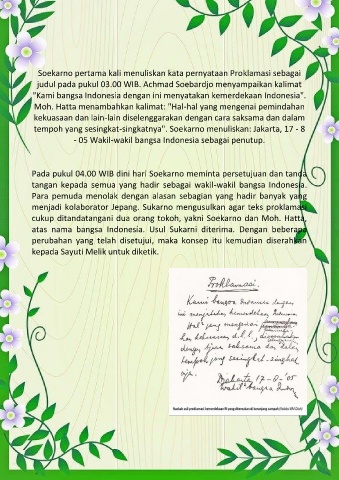 Soekarno pertama kali menuliskan kata pernyataan Proklamasi sebagai
judul pada pukul 03.00 WIB. Achmad Soebardjo menyampaikan kalimat
"Kami bangsa Indonesia dengan ini menyatakan kemerdekaan Indonesia".
Moh. Hatta menambahkan kalimat: "Hal-hal yang mengenai pemindahan
kekuasaan dan lain-lain diselenggarakan dengan cara saksama dan dalam
tempoh yang sesingkat-singkatnya". Soekarno menuliskan: Jakarta, 17 - 8
- 05 Wakil-wakil bangsa Indonesia sebagai penutup.
Pada pukul 04.00 WIB dini hari Soekarno meminta persetujuan dan tanda
tangan kepada semua yang hadir sebagai wakil-wakil bangsa Indonesia.
Para pemuda menolak dengan alasan sebagian yang hadir banyak yang
menjadi kolaborator Jepang. Sukarno mengusulkan agar teks proklamasi
cukup ditandatangani dua orang tokoh, yakni Soekarno dan Moh. Hatta,
atas nama bangsa Indonesia. Usul Sukarni diterima. Dengan beberapa
perubahan yang telah disetujui, maka konsep itu kemudian diserahkan
kepada Sayuti Melik untuk diketik.
Proklamasi.
Kami bangsa Indonesia dengan
ini menjatakan kemerdekaan Indonesia.
Hal² jang mengenai
d.l.l.,
dengan tjara saksama dan dalam
tempoh jang sesingkat-singkat
nja.
Djakarta, 17-8-'05
Wakil² bangsa Indon.